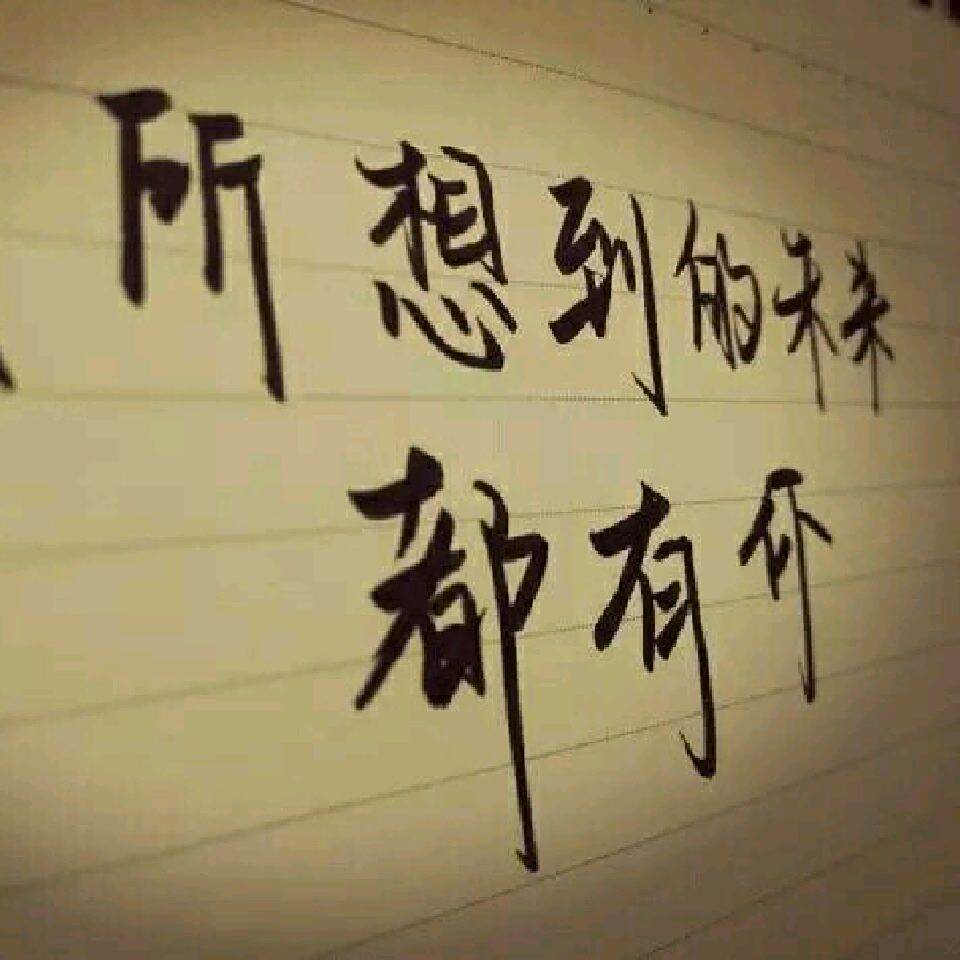 所想到的未来
都有你